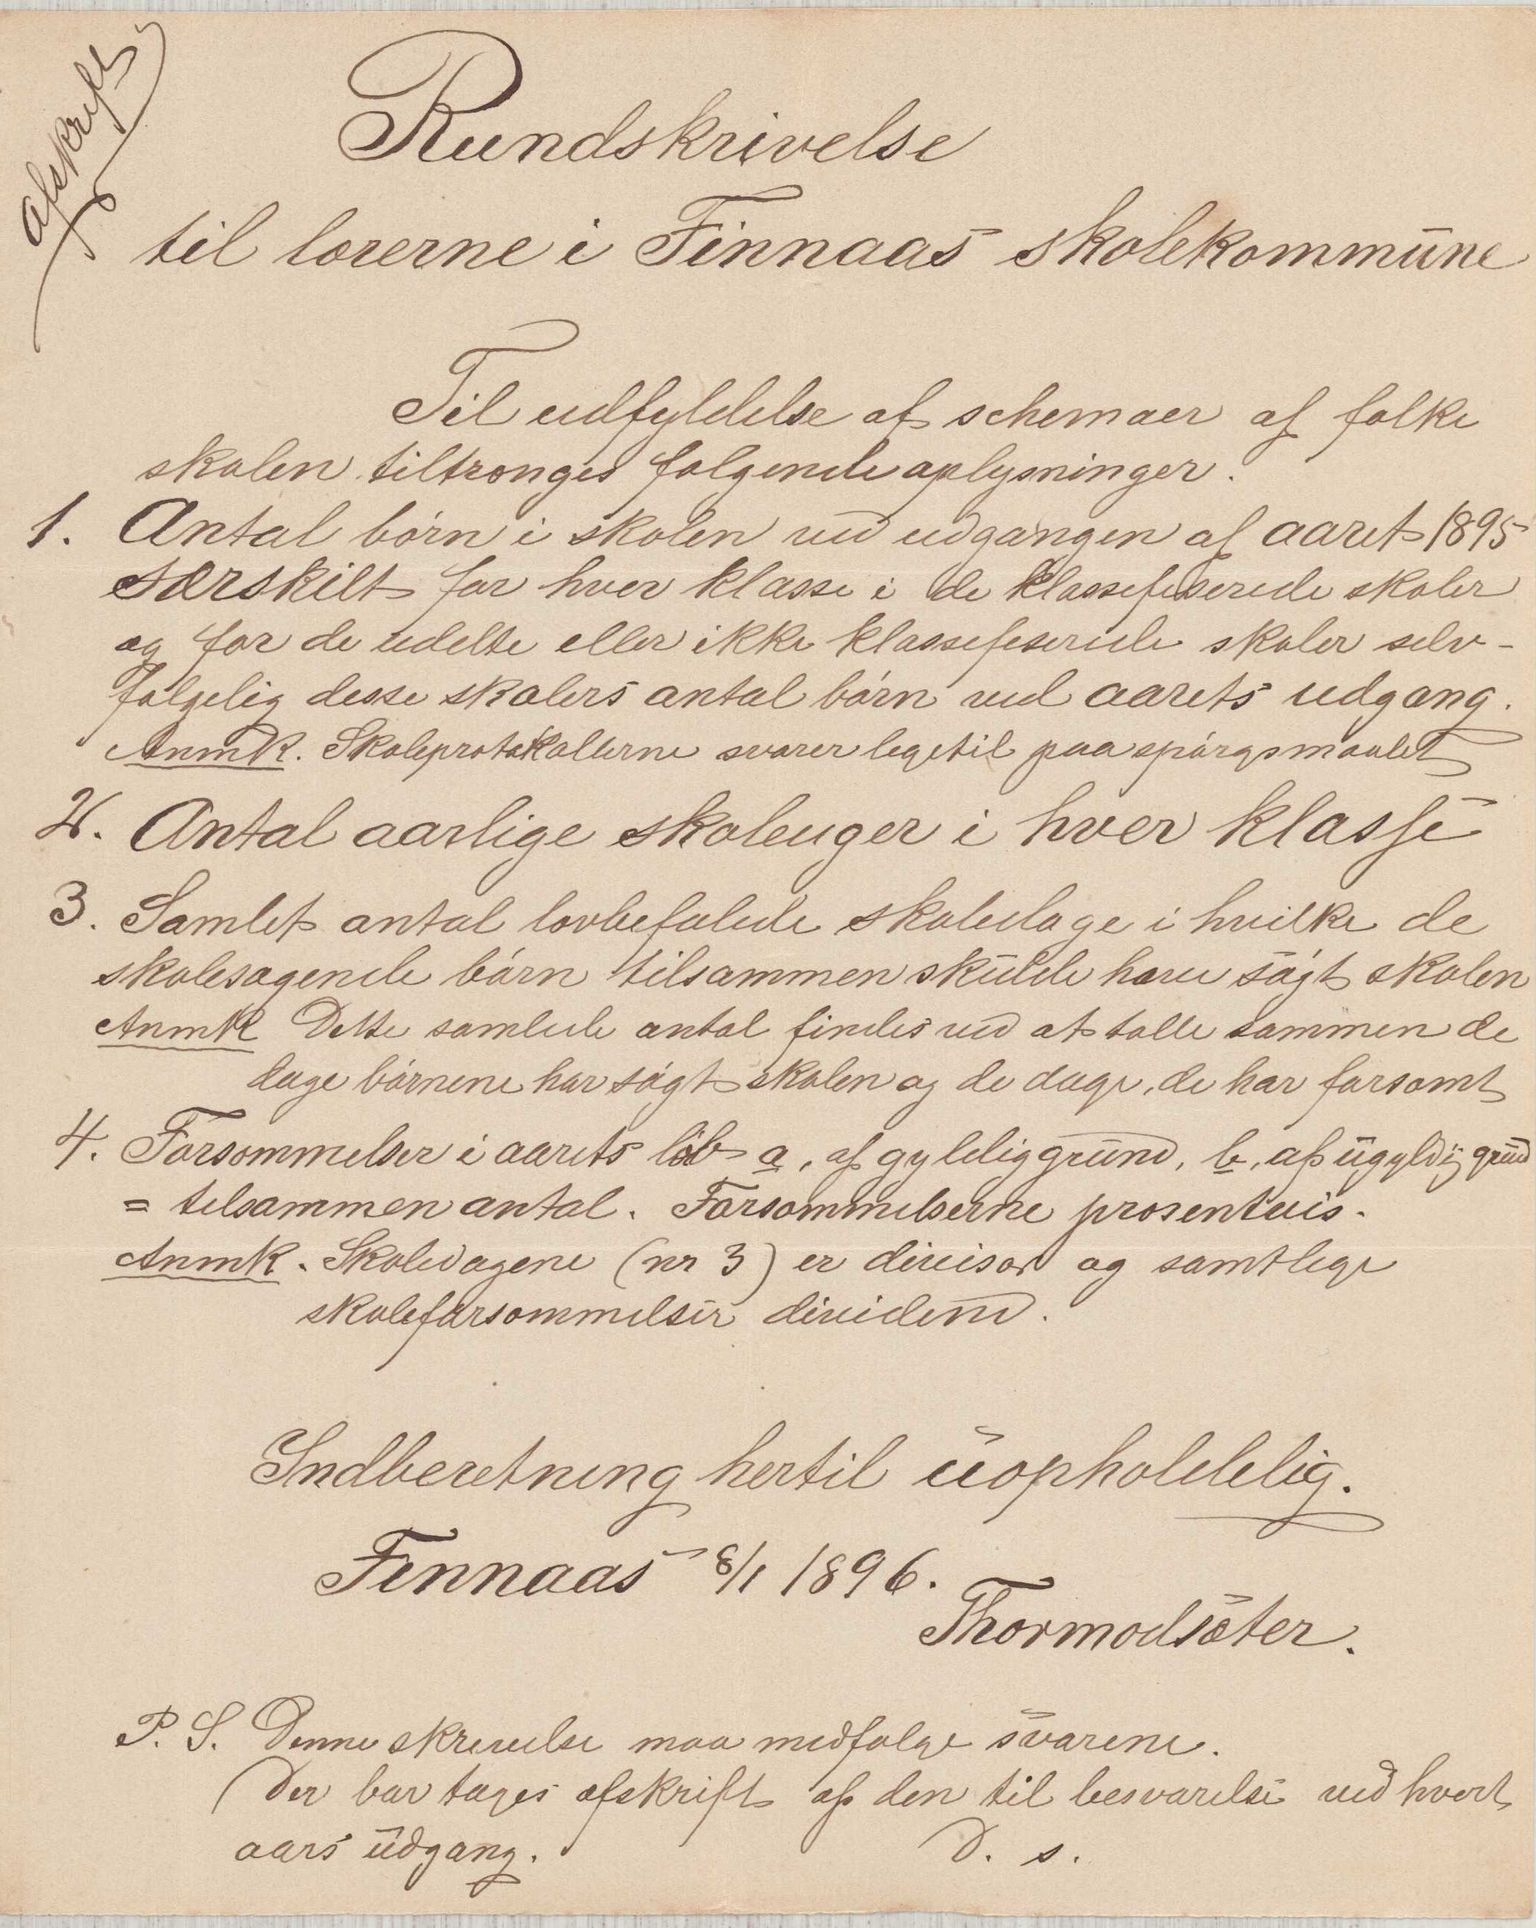 Afskrift
Rundskrivelse
til lærerne i Finnaas skolekommune
Til udfyldelse af schemaer af folke
skolen tiltrænges følgende oplysninger.
1. Antal børn i skolen ved udgangen af aaret 1895
særskilt for hver klasse i de klassefeserede skoler
og for de udelte eller ikke klassefeserede skoler selv-
følgelig desse skolers antal børn ved aarets udgang.
Anmk. Skoleprotokollerne svarer legetil paa spørgsmaalet
2. Antal aarlige skoleuger i hver klasse
3. Samlet antal lovbefalede skoledage i hvilke de
skolesøgende børn tilsammen skulde have søgt skolen
Anmk Dette samlede antal findes ved at tælle sammen de
dage børnene har søgt skolen og de dage, de har forsømt
4. Forsømmelser i aarets løb a, af gyldig grund, b, af ugyldig grund
= tilsammen antal. Forsømmelserne prosentvis.
Anmk. Skoledagene (nr 3) er divisor og samtlege
skoleforsømmelser dividend.
Indberetning hertil uopholdelig.
Finnaas 8/1 1896.
Thormodsæter.
P. S. Denne skrivelse maa medfølge svarene.
Der bør tages afskrift af den til besvarelse ved hvert
aars udgang. D. s.